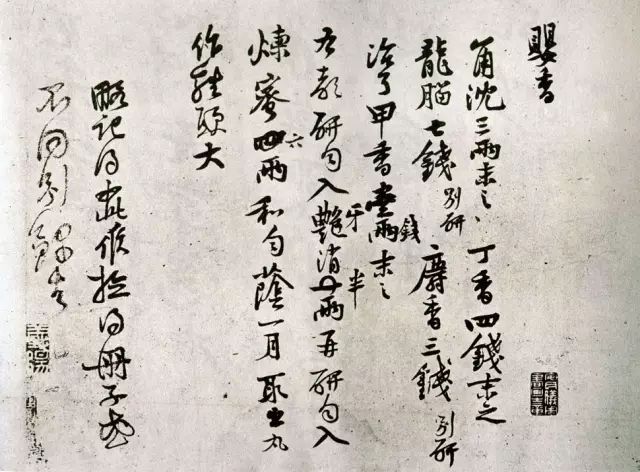 嬰香
角沉三兩末之丁香四錢末之
龍腦七錢別研麝香三錢別研
治了甲香壹錢末之
右都研勻入牙消半兩再研勻入
煉蜜六兩和勻蔭一月取出丸
作雞頭大
略記得如此候檢得冊子或
不同別錄去